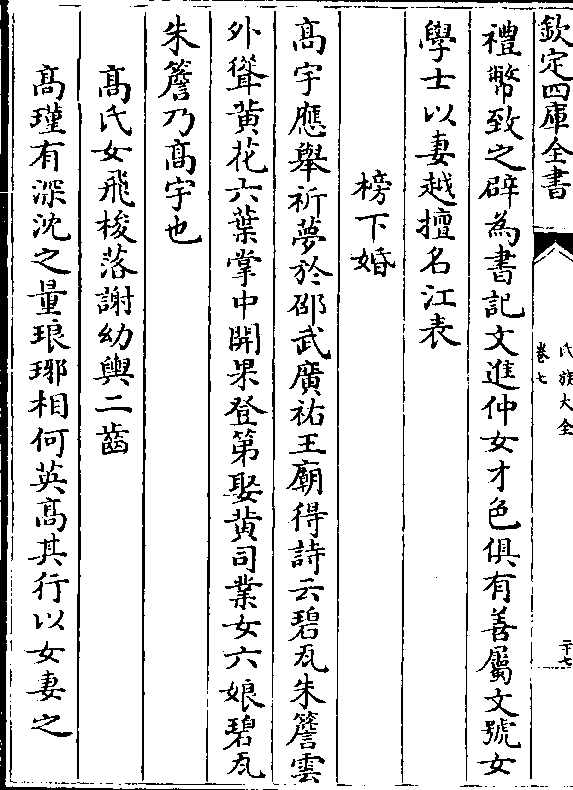 欽定四庫全書
氏族大全
卷七
二十七
禮幣致之辟為書記文進仲女才色俱有善屬文號女
學士以妻越擅名江表
榜下婚
髙宇應舉祈夢於邵武廣祐王廟得詩云碧瓦朱簷雲
外聳黄花六葉掌中開果登第娶黄司業女六娘碧瓦
朱簷乃髙宇也
髙氏女飛梭落謝幼輿二齒
髙瑾有深沈之量琅琊相何英髙其行以女妻之